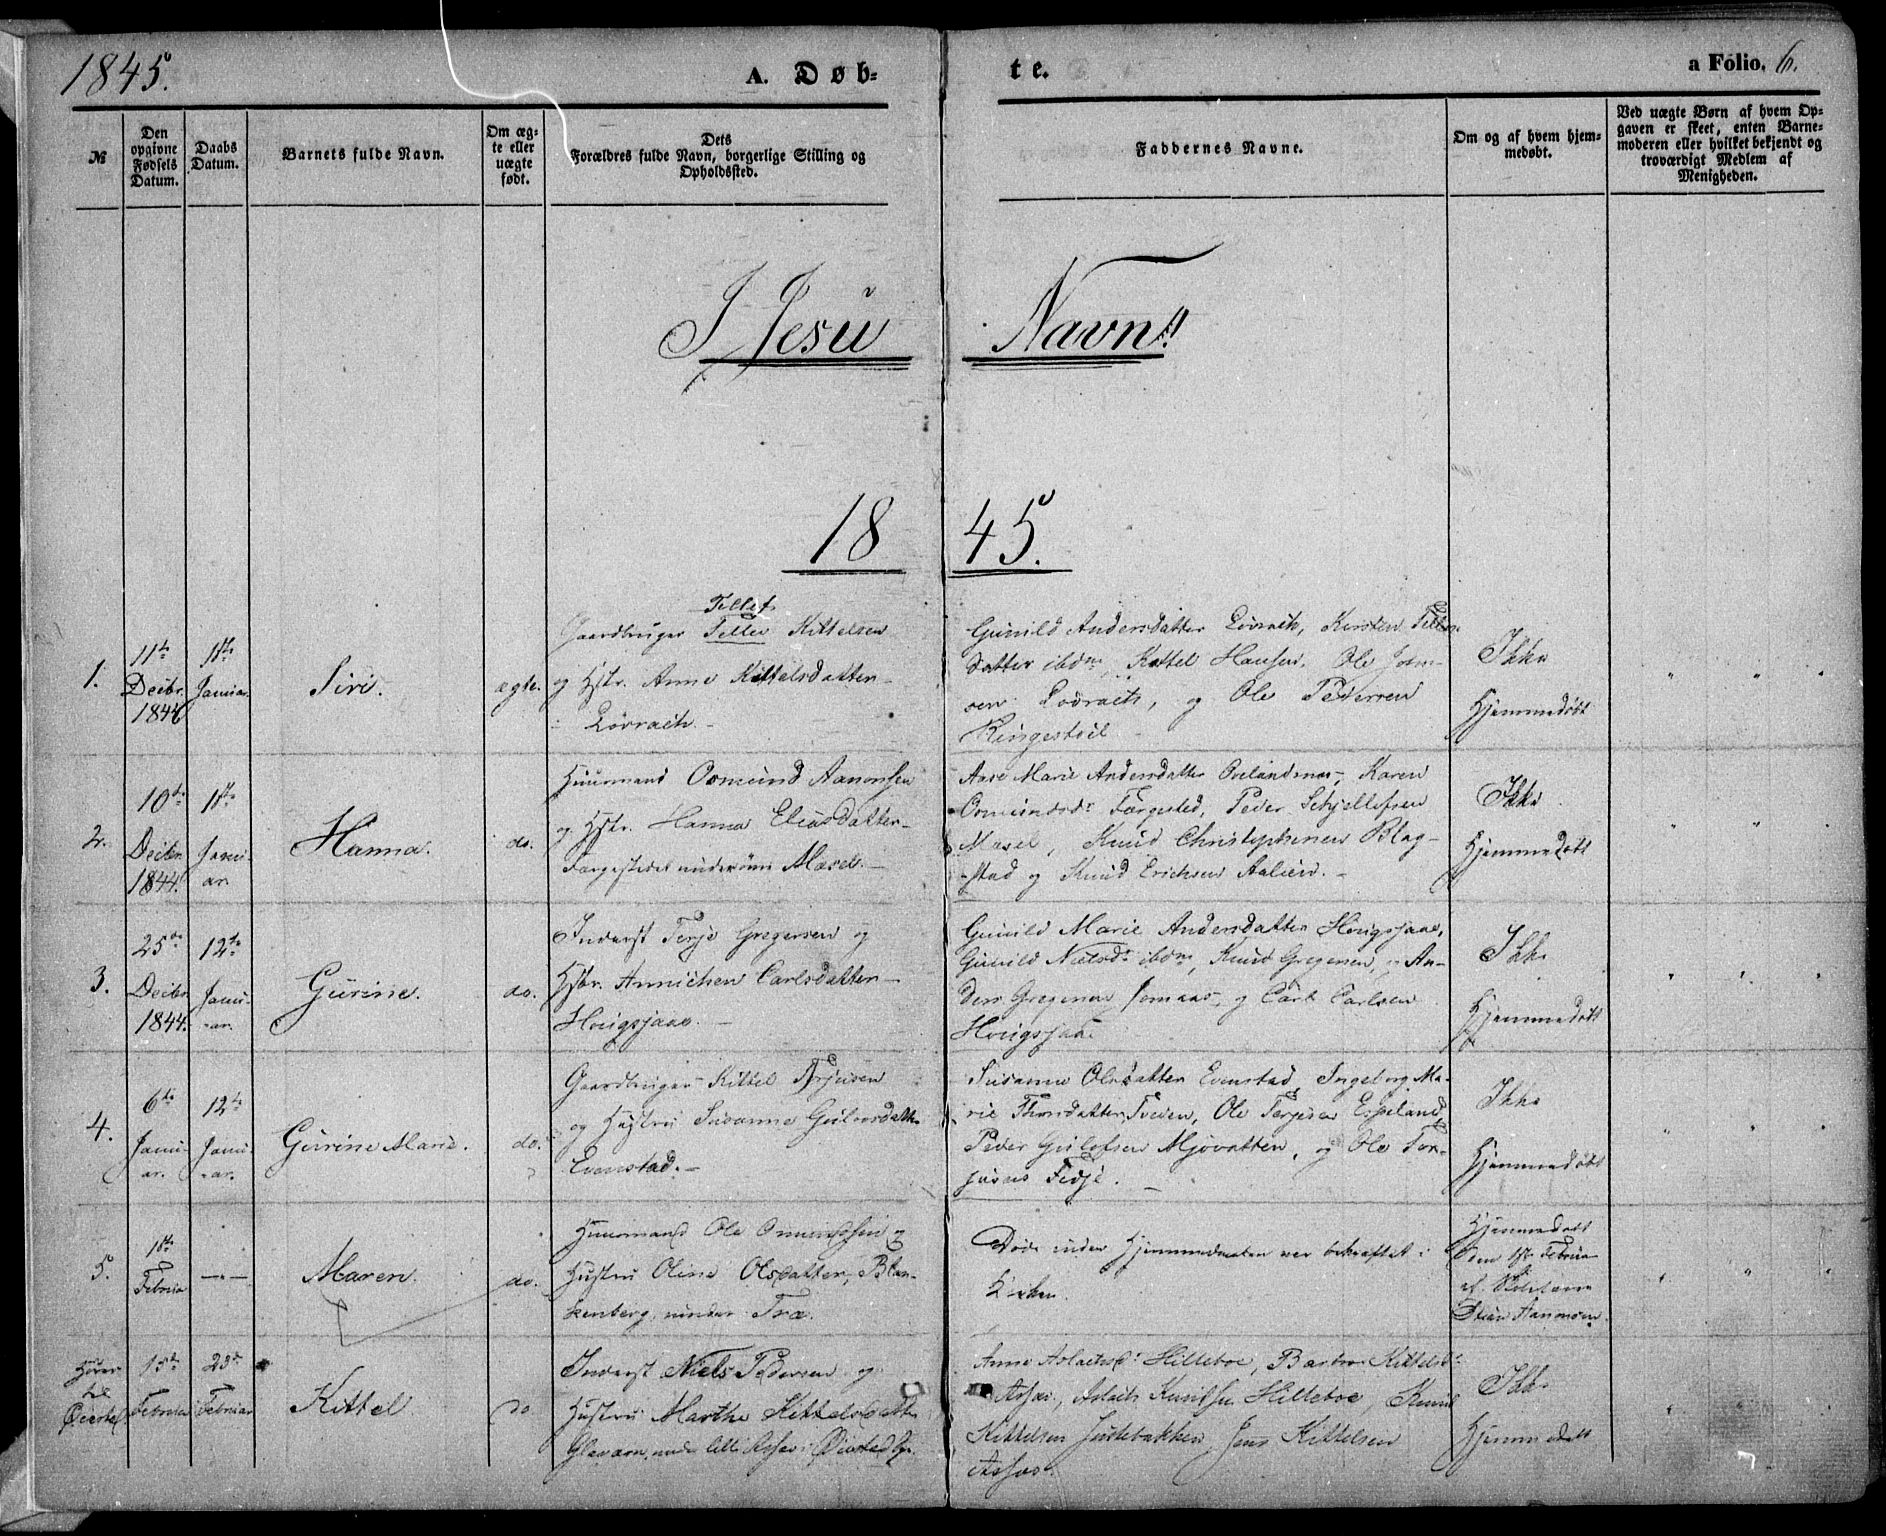 1845.
A. Døb-
te.
a Folio. 6.
№
Den opgivne Fødsels Datum.
Daabs Datum.
Barnets fulde Navn.
Om ægte eller uægte født.
Dets
Forældres fulde Navn, borgerlige Stilling og
Opholdssted.
Faddernes Navne.
Om og af hvem hjem-
medøbt.
Ved uægte Børn af hvem Op-
gaven er skeet, enten Barne-
moderen eller hvilket bekjendt og
troværdigt Medlem af
Menigheden.
I Jesu Navn!!
1845.
1.
11te
Decbr.
1844
11te
Januar.
Siri.
ægte.
Tellef
Gaardbruger Tellev Kittelsen
og Hstr. Anne Kittelsdatter
Løvrach.
Gunild Andersdatter Løvrach, Kirsten Tellevs-
datter ibdm, Kittel Hansen, Ole
sen Løvrach, og Ole Pedersen
Ringestøil
Ikke
Hjemmedøbt
2.
10de
Decbr.
1844.
11te
Janu-
ar.
Hanna.
do.
Huusmand Osmund Aanonsen
og Hstr. Hanna Eliasdatter
Færgestedet under Mæsel.
Aase Marie Andersdatter Karen
Osmundsdr Færgested, Peder Schjellefsen
Mæsel, Knud Christophersen Blag-
stad og Knud Erichsen
Ikke
Hjemmedøbt
3.
25de
Decbr.
1844.
12te
Janu-
ar.
Gurine.
do.
Inderst Terje Gregersen og
Hstr. Annichen Carlsdatter
Hougsjaae.
Gunild Marie Andersdatter Hougsjaae,
Gunild Nielsdr ibdm, Knud Gregersen, An-
ders Gregersen og Carl Carlsen
Hougsjaae
Ikke
Hjemmedøbt
4.
6te
Janu-
ar.
12te
Janu-
ar.
Gurine Marie.
do.
Gaardbruger Kittel Terjesen
og Hustru Susanne Gulovsdatter
Evenstad.
Susanne Olsdatter Evenstad, Ingeborg Ma-
rie Thorsdatter Tveden, Ole Terjesen Espeland
Peder Gulofsen Mjovatten, og Ole Ter-
jusens Fedje.
Ikke
Hjemmedøbt
5.
1ste
Februar
Maren.
do.
Huusmand Ole Osmundsen og
Hustru Oline Olsdatter, Blan-
kenberg under Træ.
Døde inden Hjemmedaaben var bekræftet i
Kirken.
Hjemmedøbt
den 1ste Februar
af
Stian Aanonsen
Hører
til
Øiestad
15de
Februar
23de
Februar
Kittel
do
Inderst Niels Pedersen og
Hustru Marthe Kittelsdatter
under lille Assev i Øiestad
Anne Aslaksdr Hilleboe, Barbro Kittelsdr
Assev, Aslach Knudsen Hilleboe, Knud
Kittelsen Justebakken, Jens Kittelsen
Assev.
Ikke
Hjemmedøbt